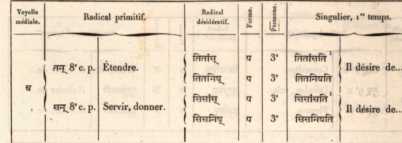 Voyelle médiale. Radical primitif. Radical désidératif. Forme. Personne. Singulier, 1er temps.
तितांस् प 3e तितांसति 1
तन् 8e c. p. Étendre. Il désire de...
तितनिष् प 3e तितनिषति
अ
सिसांस् प 3e सिसांसति 1
सन् 8e c. p. Servir, donner. Il désire de...
सिसनिष् प 3e सिसनिषति